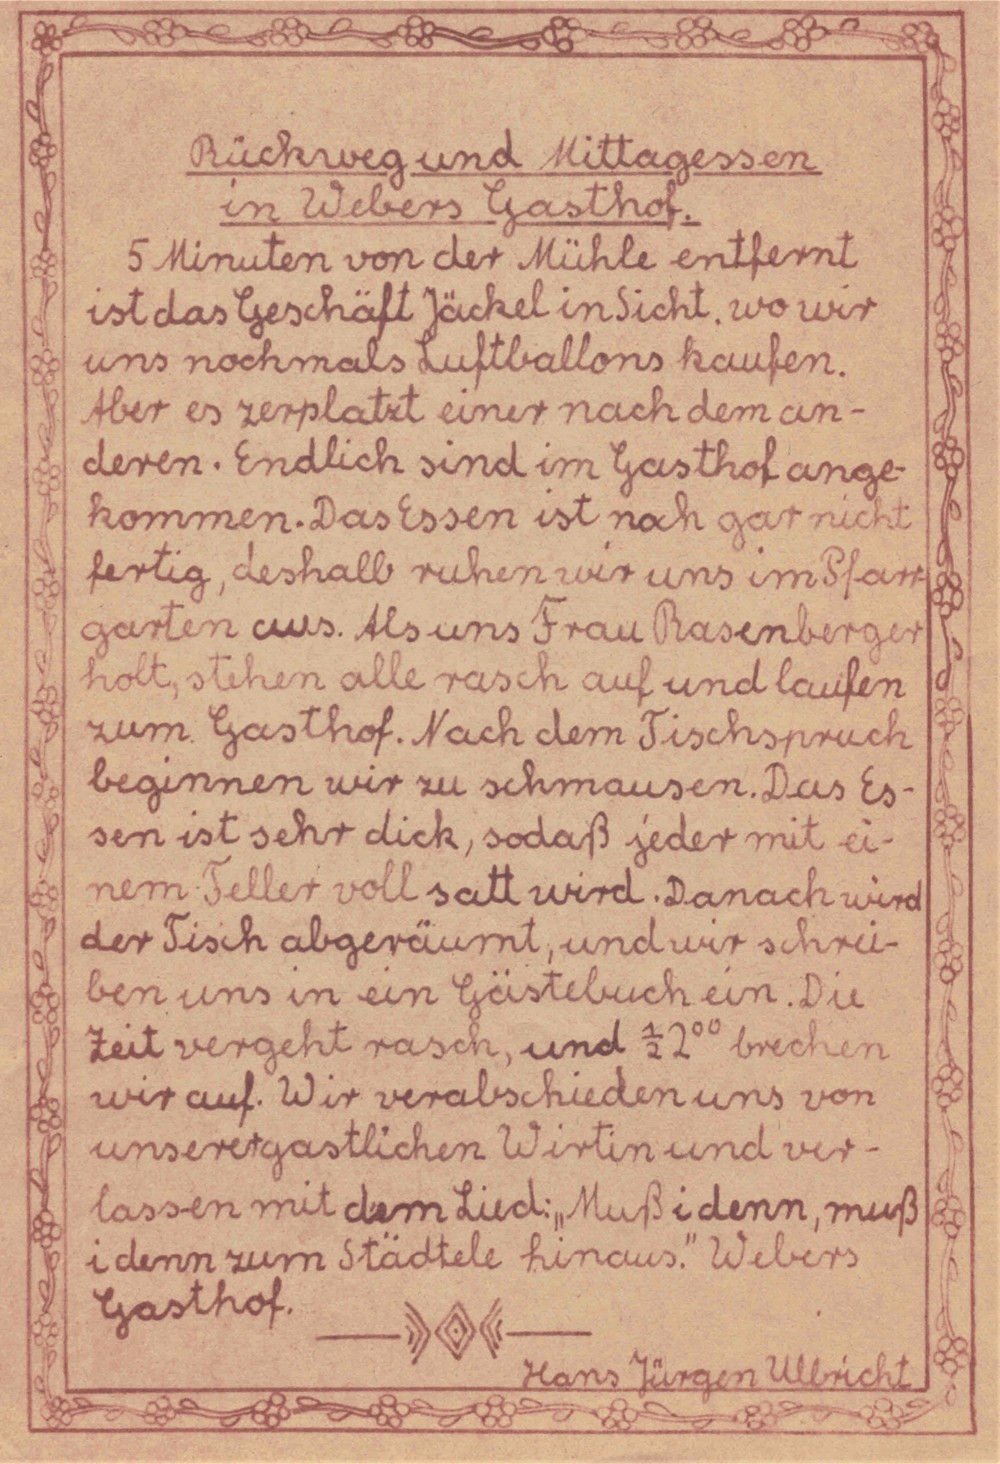 Rückweg und Mittagessen
in Webers Gasthof.
5 Minuten von der Mühle entfernt
ist das Geschäft Jäckel in Sicht, wo wir
uns nochmals Luftballons kaufen.
Aber es zerplatzt einer nach dem an-
deren. Endlich sind im Gasthof ange-
kommen. Das Essen ist noch gar nicht
fertig, deshalb ruhen wir uns im Pfarr-
garten aus. Als uns Frau Rasenberger
holt, stehen alle rasch auf und laufen
zum Gasthof. Nach dem Tischspruch
beginnen wir zu schmausen. Das Es-
sen ist sehr dick, sodaß jeder mit ei-
nem Teller voll satt wird. Danach wird
der Tisch abgeräumt, und wir schrei-
ben uns in ein Gästebuch ein. Die
Zeit vergeht rasch, und ½2⁰⁰ brechen
wir auf. Wir verabschieden uns von
unserer gastlichen Wirtin und ver-
lassen mit dem Lied: „Muß i denn, muß
i denn zum Städtele hinaus." Webers
Gasthof.
Hans Jürgen Ulbricht